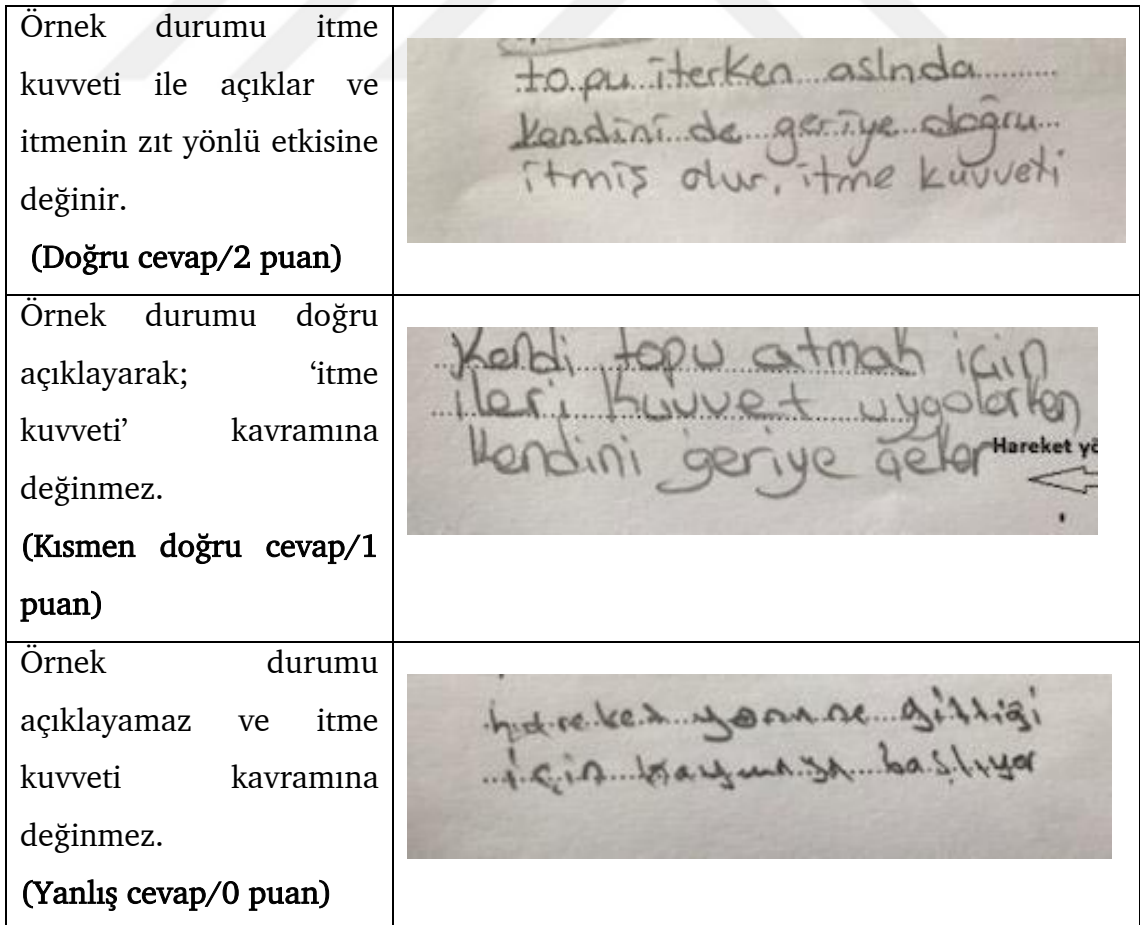 Örnek durumu itme
kuvveti ile açıklar ve
itmenin zıt yönlü etkisine
değinir.
(Doğru cevap/2 puan)
topu iterken aslnda
kendini de geriye doğru
itmiş olur, itme kuvveti
Örnek durumu doğru
açıklayarak; ‘itme
kuvveti’ kavramına
değinmez.
(Kısmen doğru cevap/1
puan)
Kendi topu atmak için
ileri kuvvet uygolarken
kendini geriye
Hareket yö
Örnek durumu
açıklayamaz ve itme
kuvveti kavramına
değinmez.
(Yanlış cevap/0 puan)
hareket yönüne gittiği
için kaymaya başlıyor